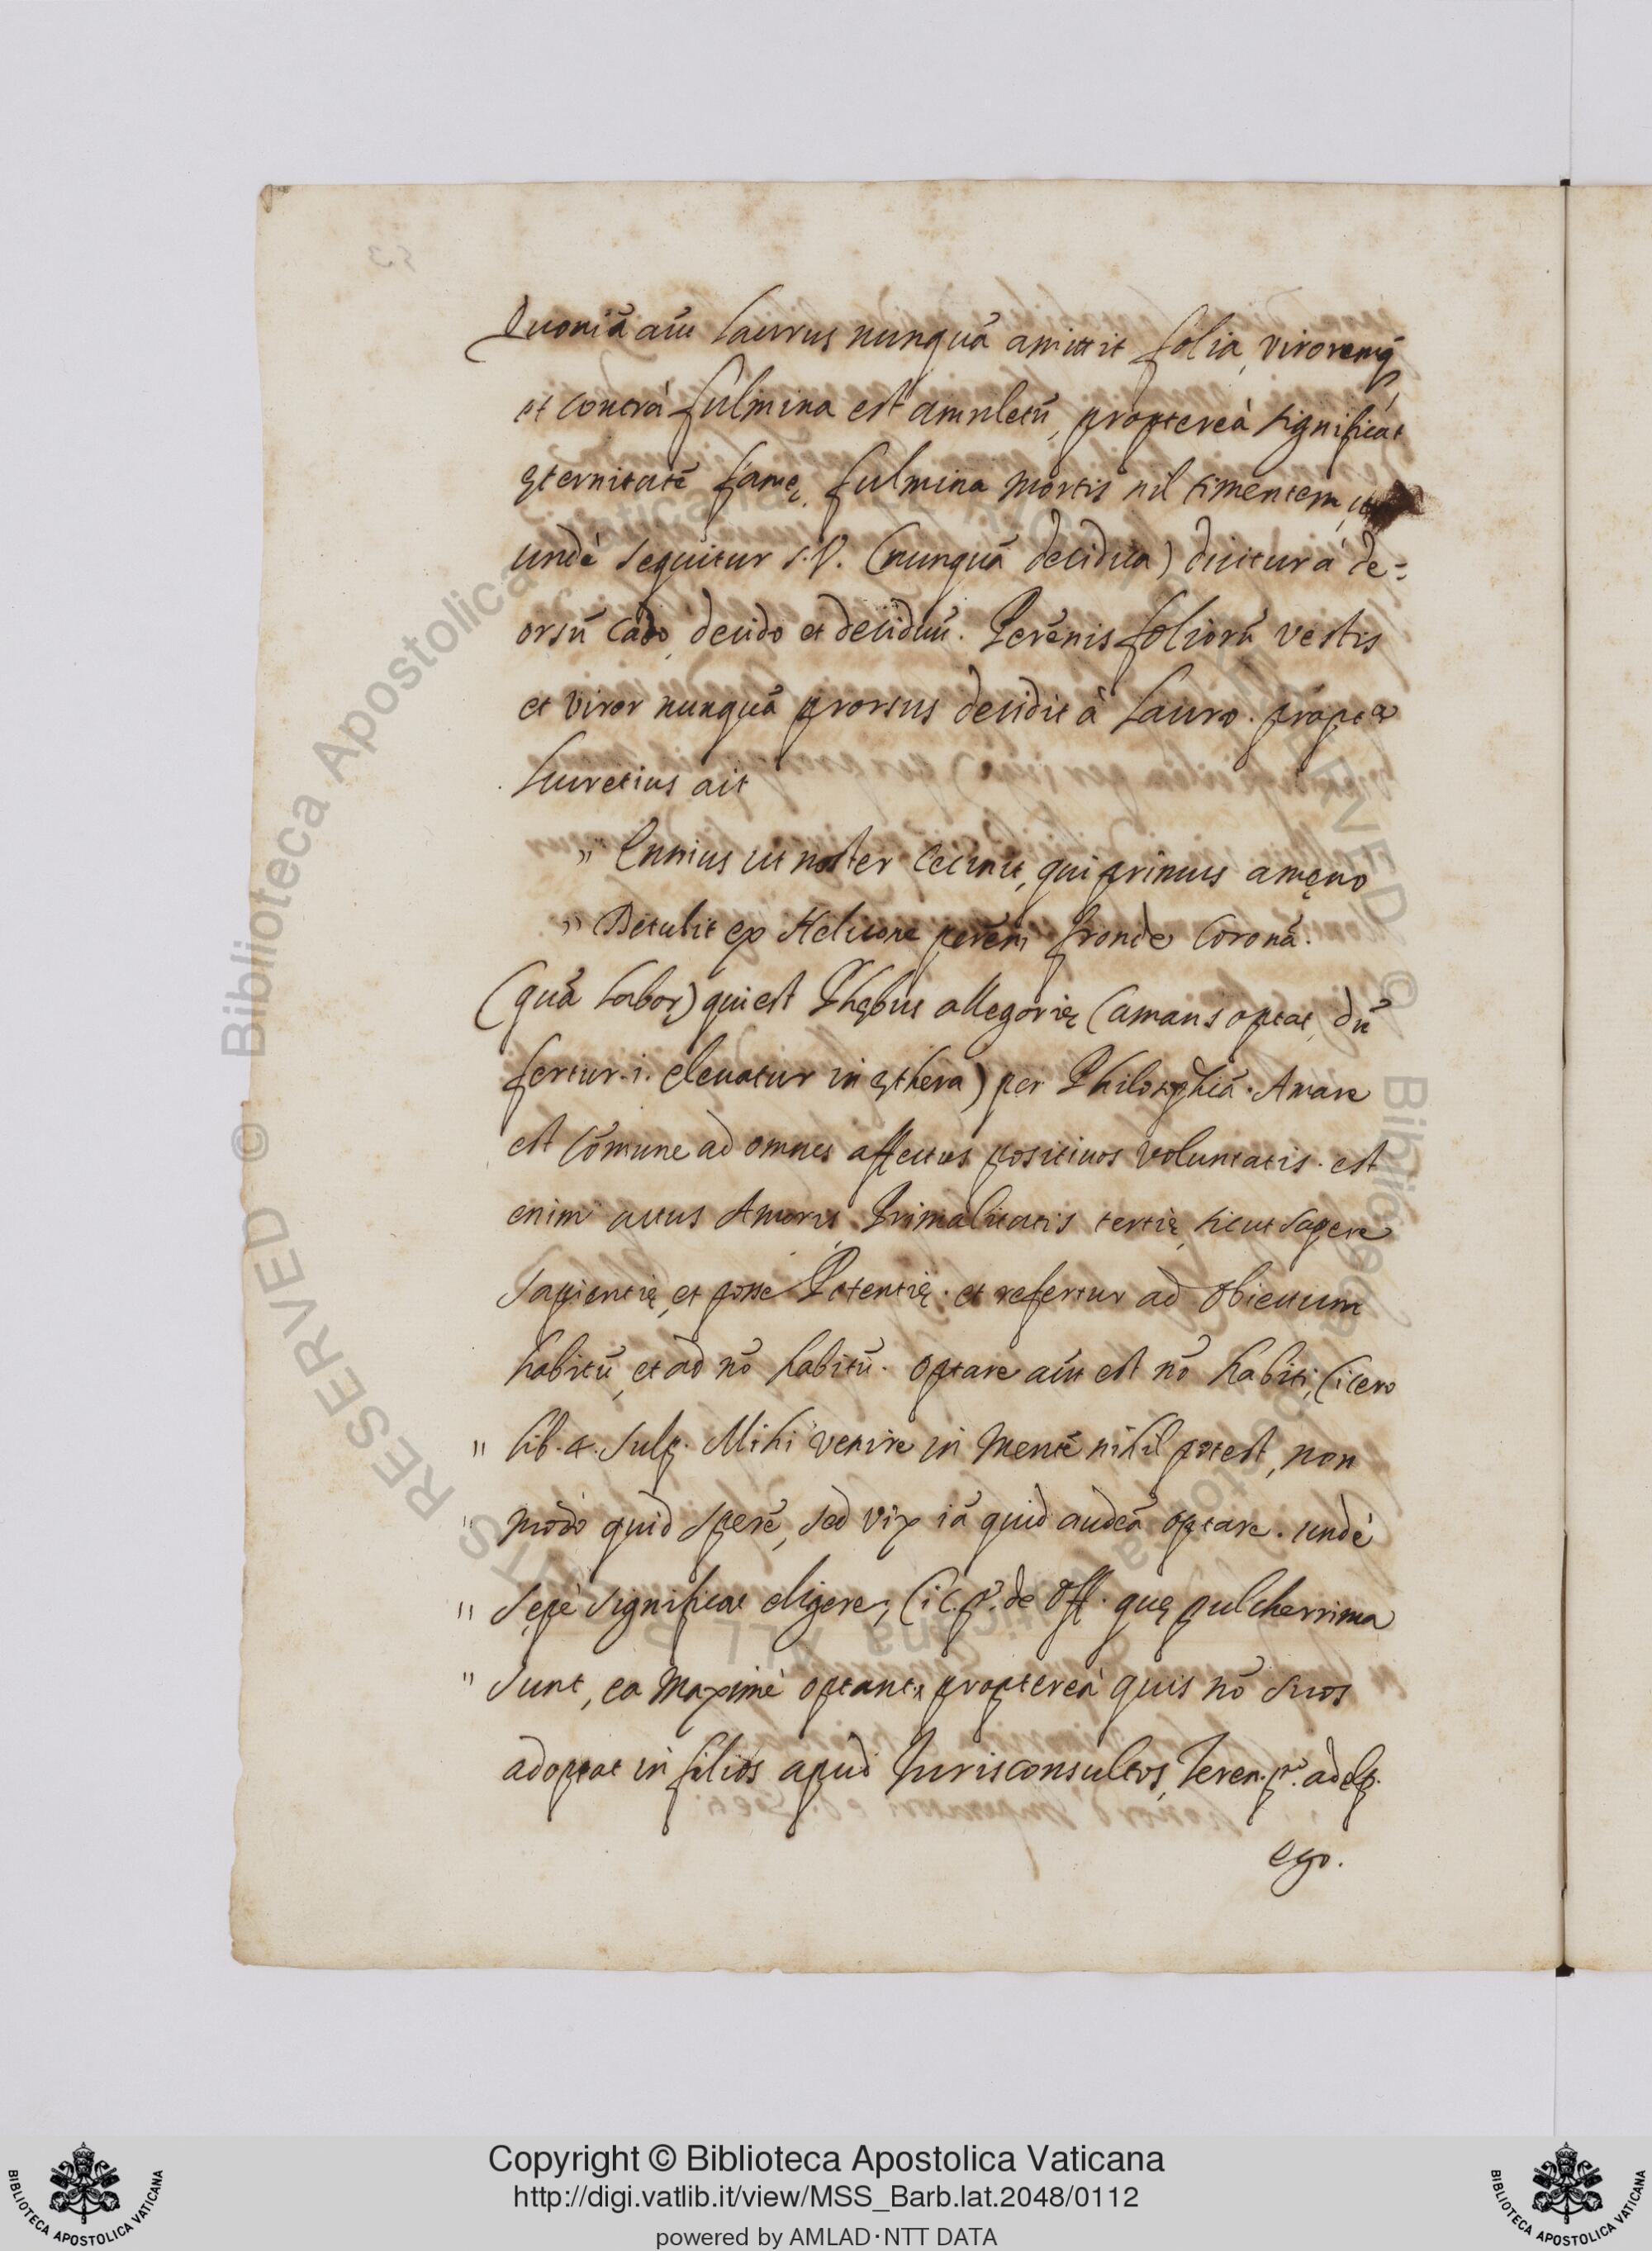 Quoniā aūt laurus nunquā amittit folia, viroremq́,
et contrà fulmina est amuletū, proptereà significat
ęternitatē famę, fulmina mortis nil timentem,
undè sequitur s.V. (nunquā decidua) dicitur á de=
orsū cado, decido et deciduū. Perēnis foliorū vestis
et viror nunquā prorsus decidit à lauro. propter
Lucretius ait
" Ennius ut noster cecinit, qui primus amęno
" Detulit ex Helicone perēni fronde coronā.
(quā labor) qui est Phębus allegorię (amans optat, dū
fertur .i. elevatur in ęthera) per Philosophiā. Amare
est cōmune ad omnes affectus positivos voluntatis. est
enim actus Amoris, Primalitatis tertię, sicut sapere
Sapientię, et posse Potentię. et refertur ad obiectum
habitū, et ad nō habitū. optare aūt est nō habiti, Cicero
" lib. 4. Sulp. Mihi venire in mentē nihil potest, non
" modò quid sperē, sed vix iā quid audeā optare. undè
" Sępè significat eligere, Cic. pº. de Off. quę pulcherrima
" sunt, ea maximè optant, proptereà quis nō suos
adoptat in filios apud Jurisconsultos, Teren. pº. adelp.
ego.
Copyright © Biblioteca Apostolica Vaticana
http://digi.vatlib.it/view/MSS_Barb.lat.2048/0112
powered by AMLAD·NTT DATA
BIBLIOTECA APOSTOLICA VATICANA
BIBLIOTECA APOSTOLICA VATICANA